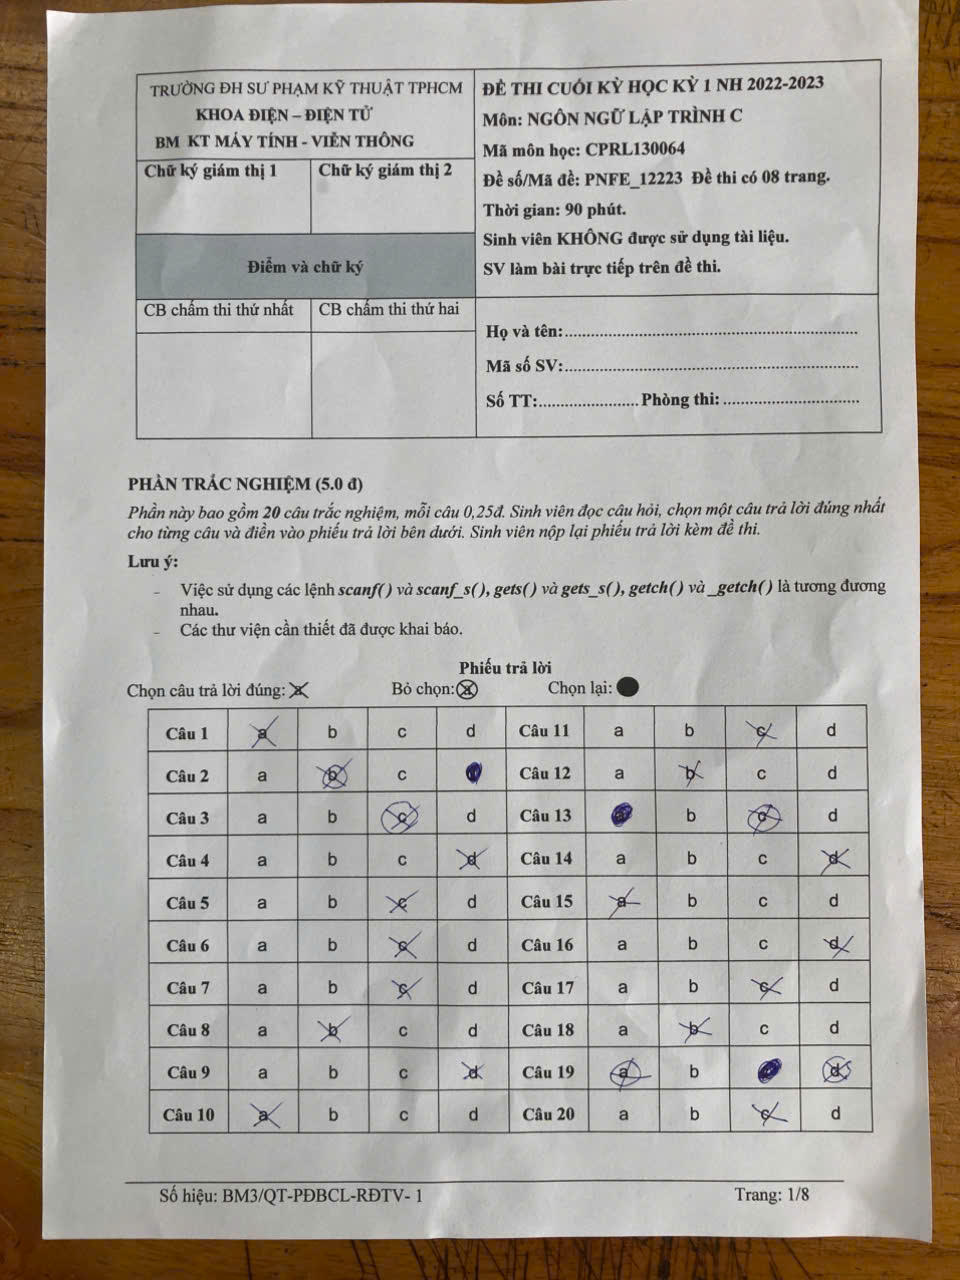 TRƯỜNG ĐH SƯ PHẠM KỸ THUẬT TPHCM
KHOA ĐIỆN – ĐIỆN TỬ
BM KT MÁY TÍNH - VIỄN THÔNG
Chữ ký giám thị 1
Chữ ký giám thị 2
Điểm và chữ ký
CB chấm thi thứ nhất
CB chấm thi thứ hai
ĐỀ THI CUỐI KỲ HỌC KỲ 1 NH 2022-2023
Môn: NGÔN NGỮ LẬP TRÌNH C
Mã môn học: CPRL130064
Đề số/Mã đề: PNFE_12223 Đề thi có 08 trang.
Thời gian: 90 phút.
Sinh viên KHÔNG được sử dụng tài liệu.
SV làm bài trực tiếp trên đề thi.
Họ và tên:
Mã số SV:
Số TT: Phòng thi:
PHẦN TRẮC NGHIỆM (5.0 đ)
Phần này bao gồm 20 câu trắc nghiệm, mỗi câu 0,25đ. Sinh viên đọc câu hỏi, chọn một câu trả lời đúng nhất
cho từng câu và điền vào phiếu trả lời bên dưới. Sinh viên nộp lại phiếu trả lời kèm đề thi.
Lưu ý:
- Việc sử dụng các lệnh scanf() và scanf_s(), gets() và gets_s(), getch() và _getch() là tương đương
nhau.
- Các thư viện cần thiết đã được khai báo.
Phiếu trả lời
Chọn câu trả lời đúng: a Bỏ chọn: a Chọn lại:
Câu 1 a b c d Câu 11 a b c d
Câu 2 a b c Câu 12 a b c d
Câu 3 a b c d Câu 13 b c d
Câu 4 a b c d Câu 14 a b c d
Câu 5 a b c d Câu 15 a b c d
Câu 6 a b c d Câu 16 a b c d
Câu 7 a b c d Câu 17 a b c d
Câu 8 a b c d Câu 18 a b c d
Câu 9 a b c d Câu 19 a b d
Câu 10 a b c d Câu 20 a b c d
Số hiệu: BM3/QT-PĐBCL-RĐTV- 1
Trang: 1/8